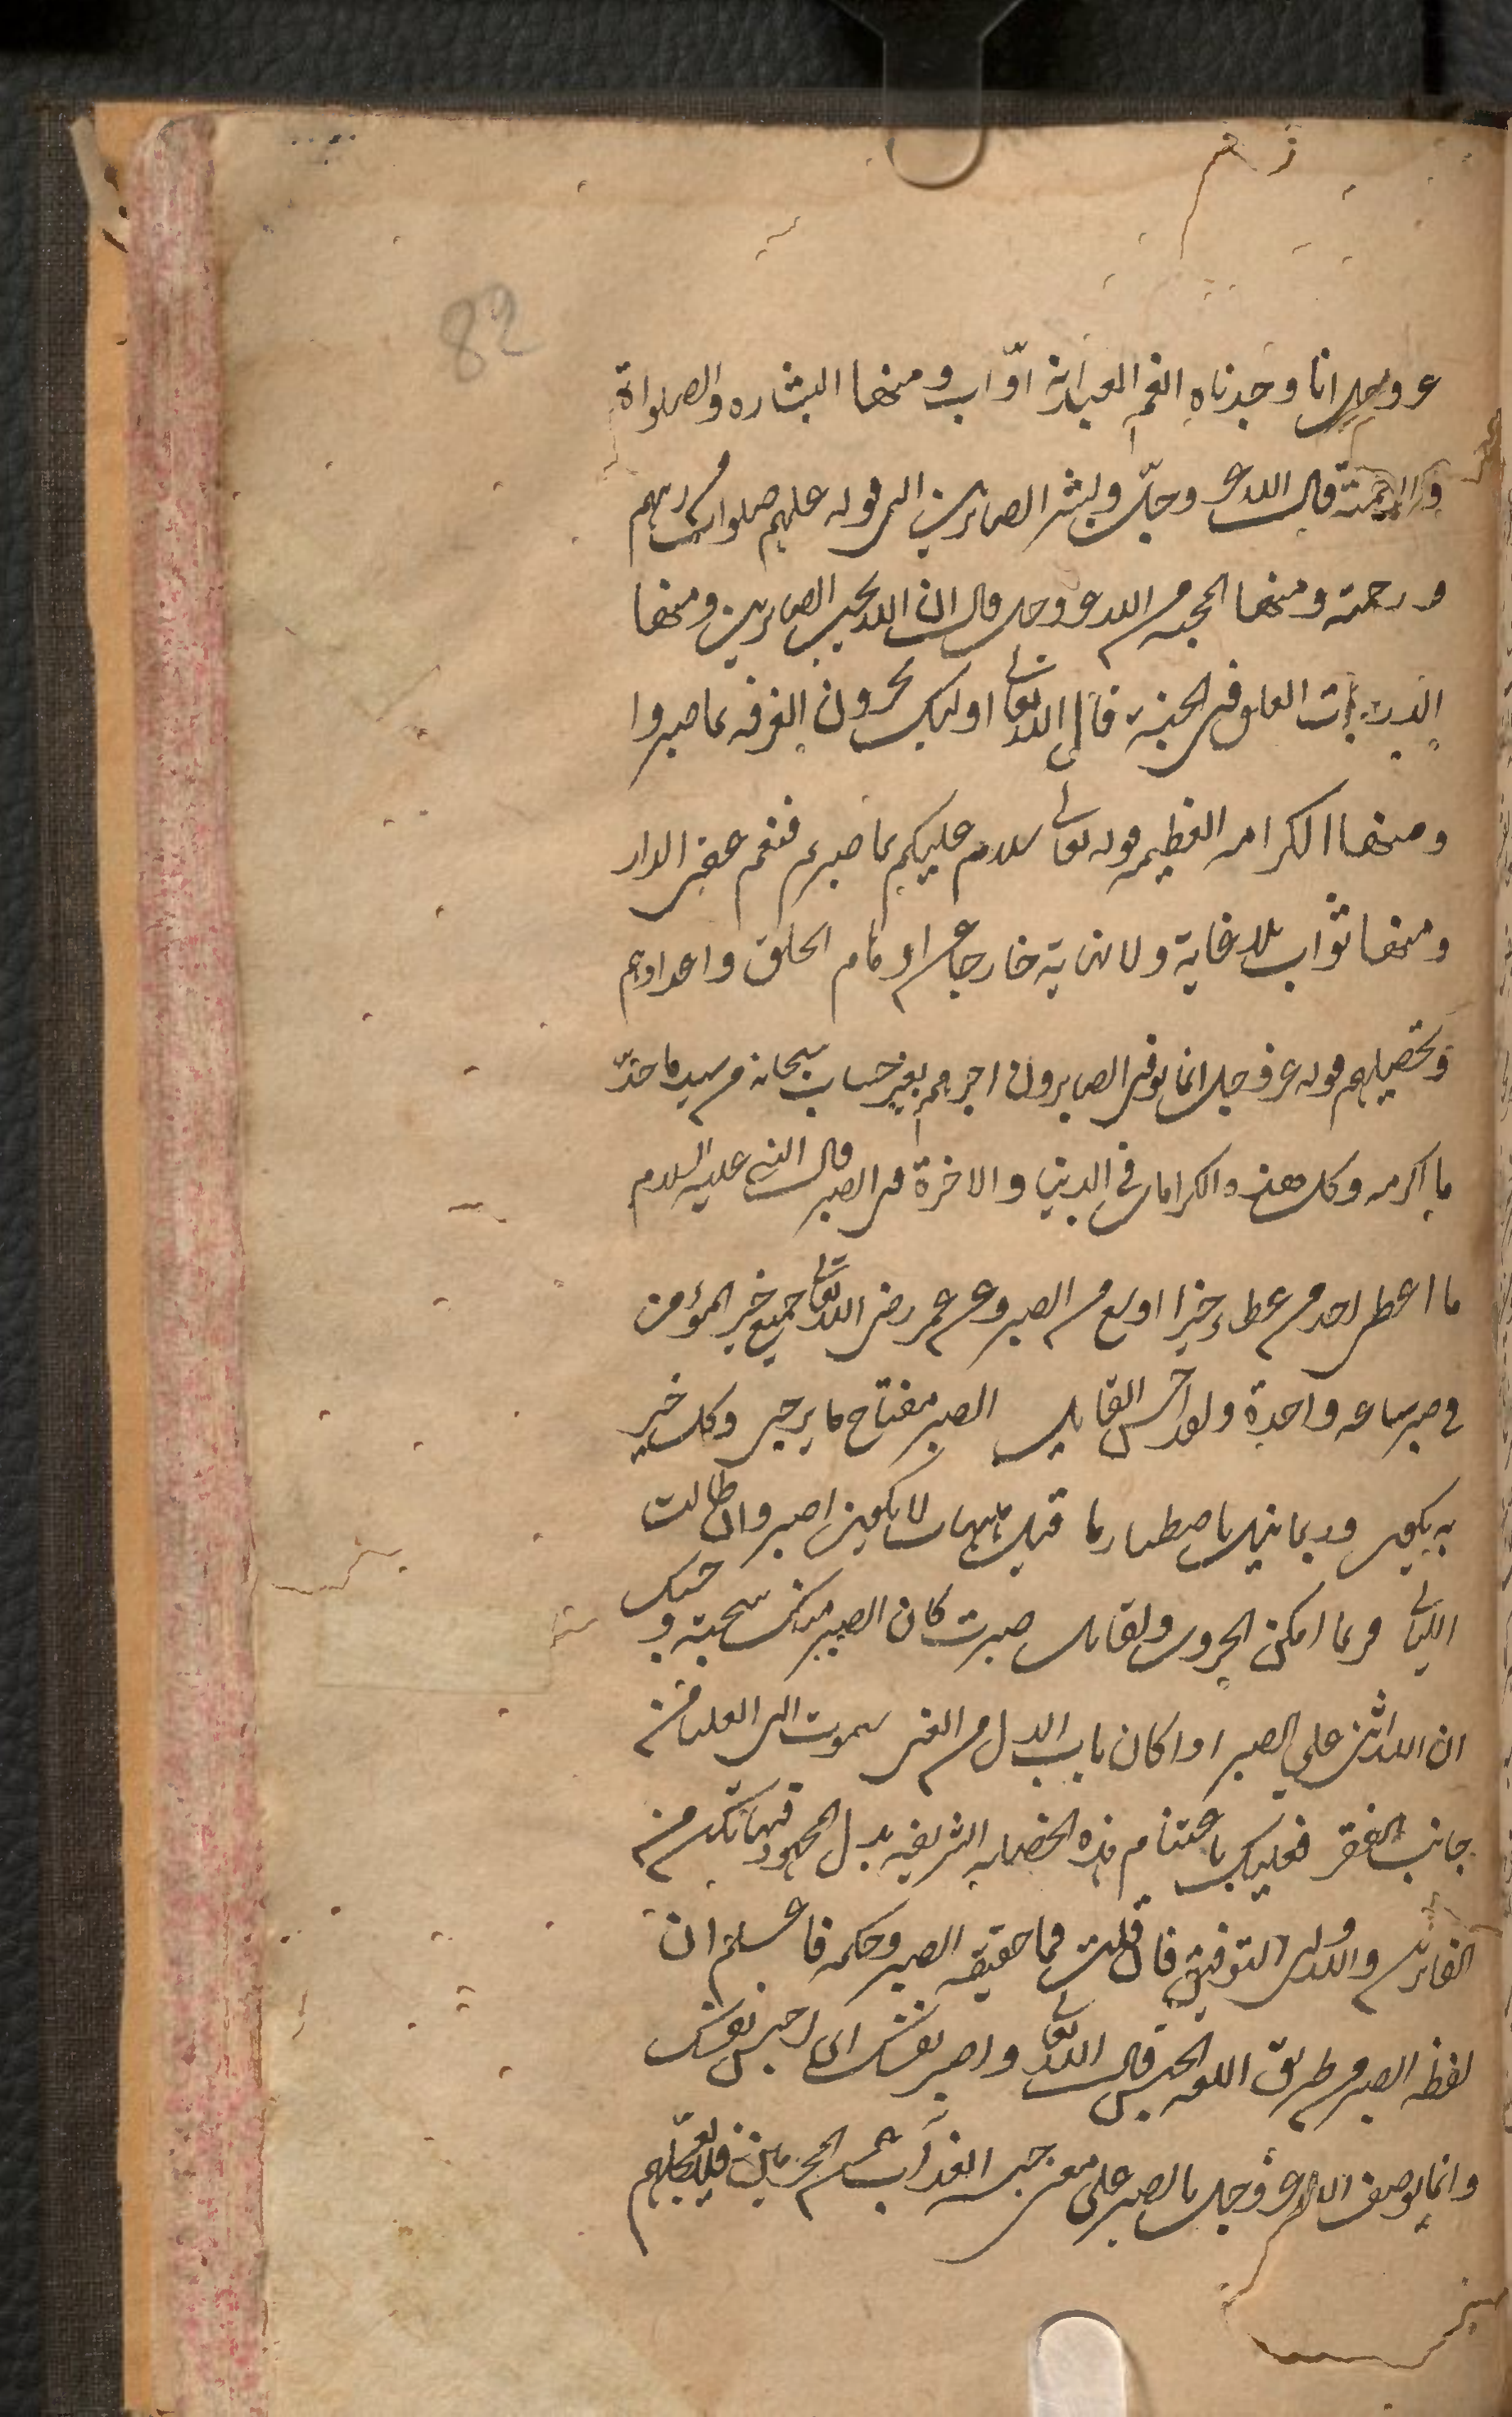 82
عز وجل انا وجدناه نعم العبد انه اوّاب ومنها البشاره والصلواة
والرحمة قال الله عز وجلّ وبشر الصابرين الى قوله عليهم صلوات من ربهم
ورحمة ومنها المحبه من الله عز وجل قال ان الله يحب الصابرين ومنها
الدرجات العلى في الجنة قال الله تعالى اوليك يجزون الغرفه بما صبروا
ومنها الكرامه العظيمه قوله تعالى سلام عليكم بما صبرتم فنعم عقبى الدار
ومنها ثواب بلا غاية ولا نهاية خارجا عن اوهام الخلق واعدادهم
وتحصيلهم قوله عز وجل انما يوفى الصابرون اجرهم بغير حساب سبحانه من سيد ماجدّ
ما اكرمه وكل هذه الكرامات في الدنيا والاخرة من الصبر قال النبي عليه السلام
ما اعطى احد من عطاء خيرا اوسع من الصبر وعن عمر رضى الله تعالى جميع خير المؤمن
في صبر ساعه واحدة ولقد احسن القايل الصبر مفتاح ما يرجى وكل خير
به يكون وربما نيل باصطبار ما قيل هيهات لا يكون اصبر وان طالت
الليالي فربما امكن الحرون ولقايل صبرت كان الصبر منك سجية وحسبك
ان الله اثنى على الصبر اذا كان باب الذل من الغنى سموت الى العليا من
جانب الفقر فعليك باغتنام هذه الخصله الشريفه بذل المجهود فيها تكن من
الفايزين والله ولى التوفيق فان قلت فما حقيقه الصبر وحكمه فاعلم ان
لفظه الصبر من طريق اللغه الحبس قال الله تعالى واصبر نفسك اى احبس نفسك
وانما يوصف الله عز وجل بالصبر على معنى حبس العذاب عن المجرمين فلا يعجّلهم